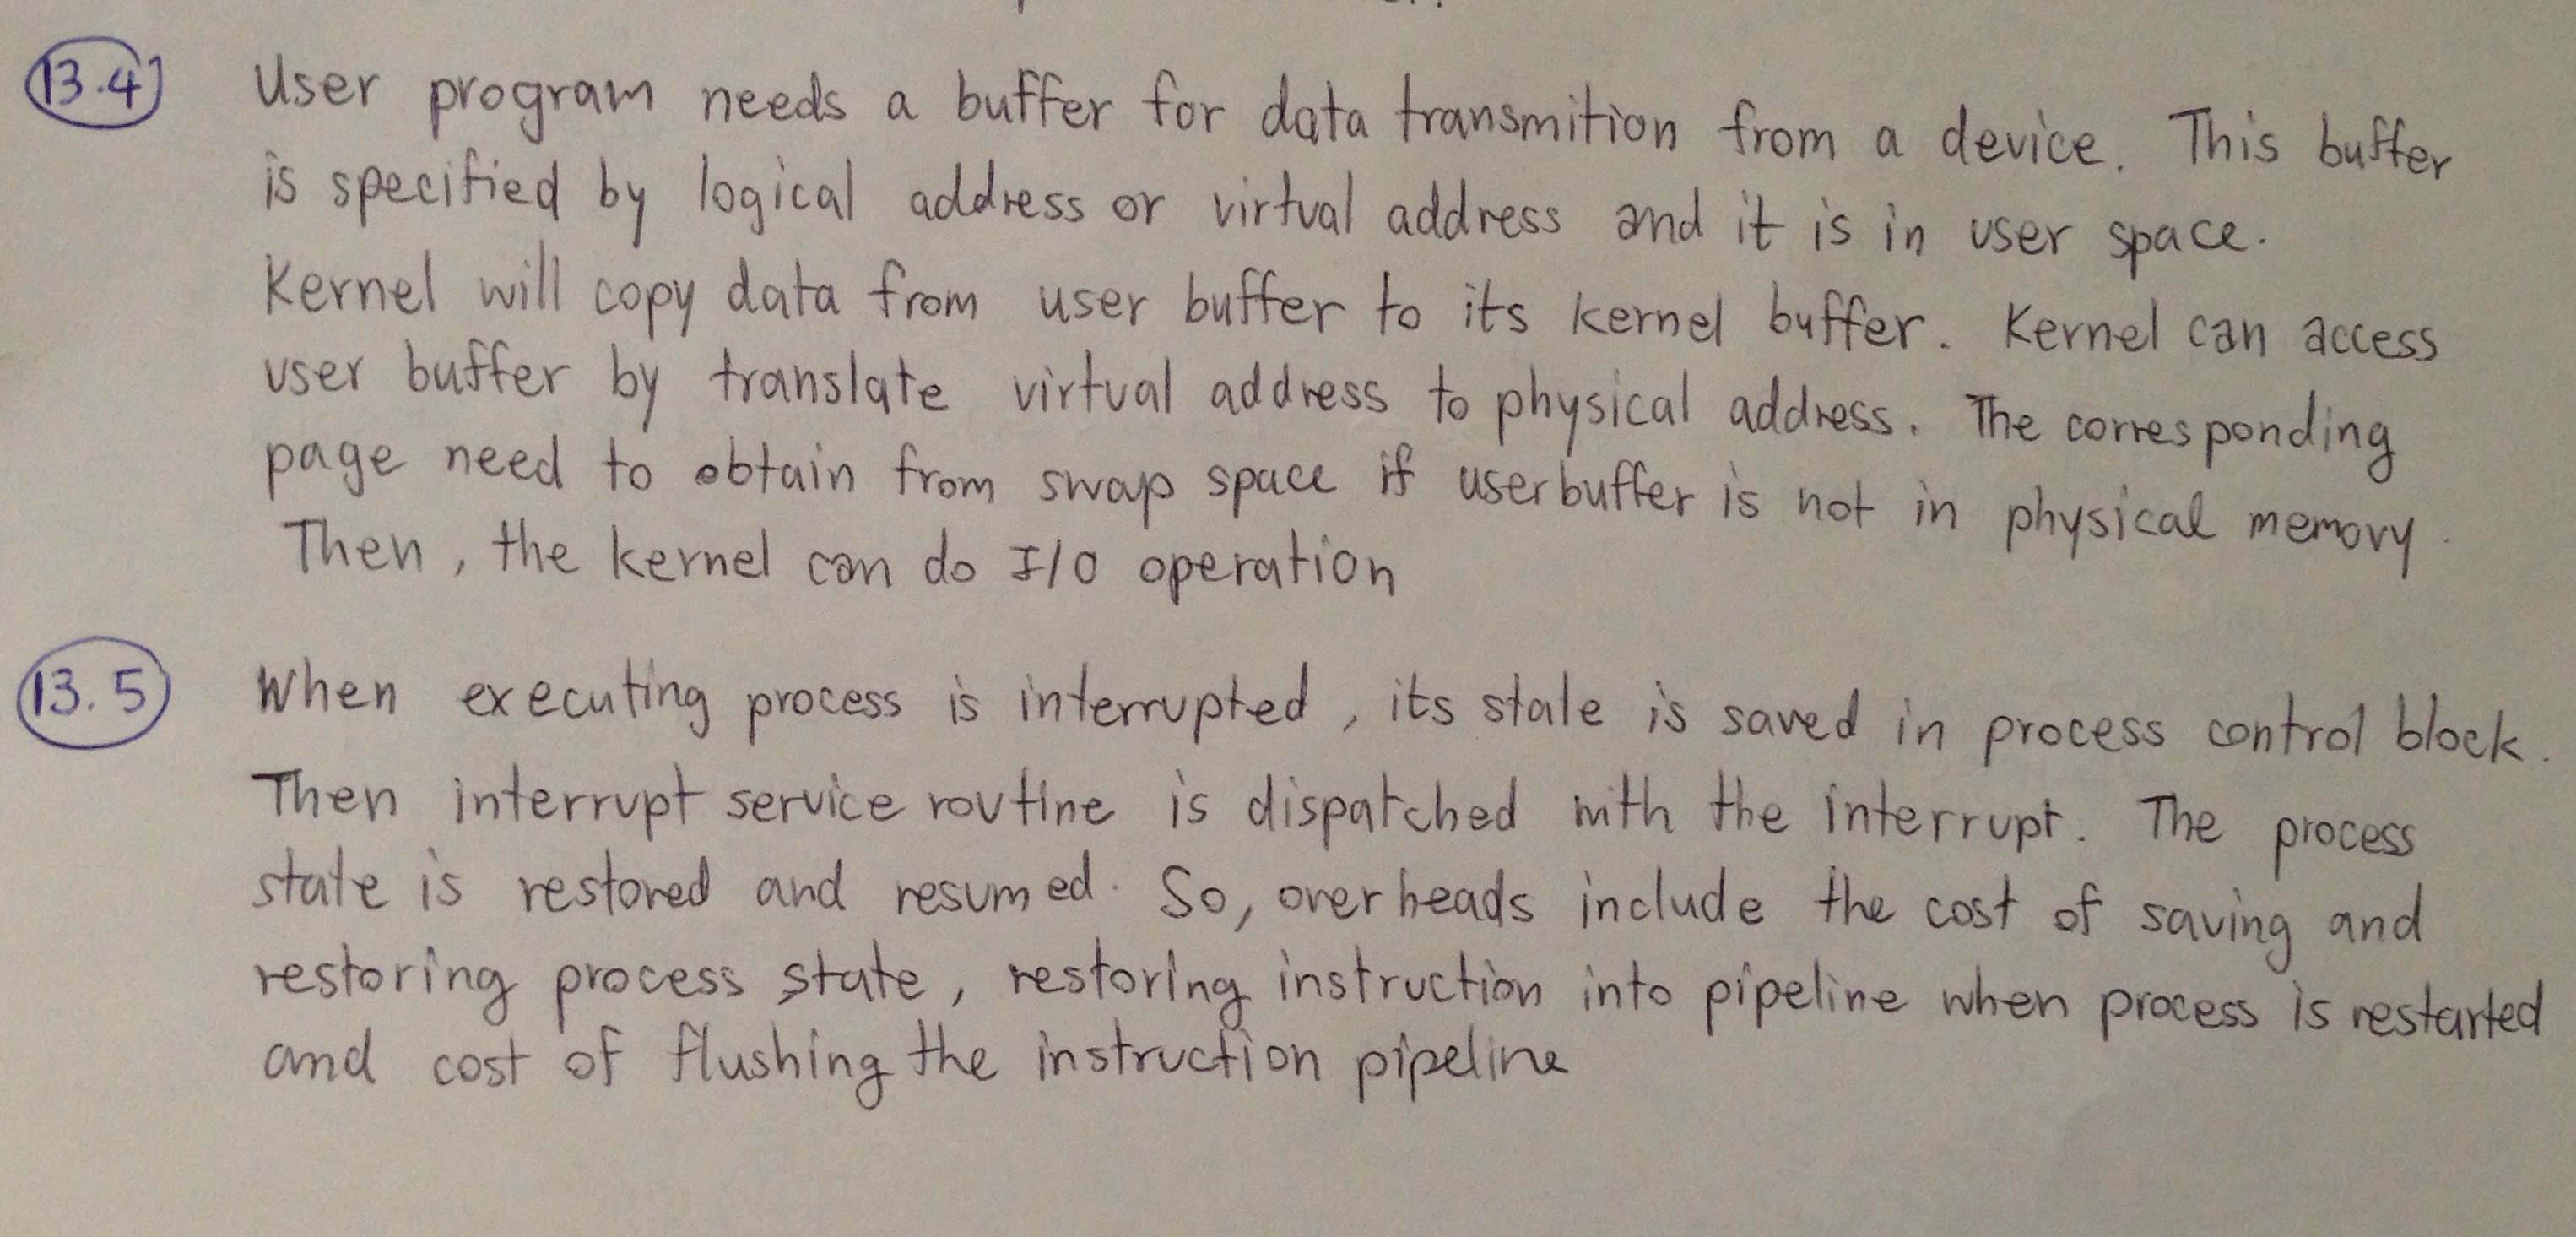 13.4 User program needs a buffer for data transmition from a device. This buffer
is specified by logical address or virtual address and it is in user space.
Kernel will copy data from user buffer to its kernel buffer. Kernel can access
user buffer by translate virtual address to physical address. The corresponding
page need to obtain from swap space if userbuffer is not in physical memory.
Then, the kernel can do I/O operation
13.5 When executing process is interrupted, its state is saved in process control block.
Then interrupt service routine is dispatched with the interrupt. The process
state is restored and resumed. So, overheads include the cost of saving and
restoring process state, restoring instruction into pipeline when process is restarted
and cost of flushing the instruction pipeline